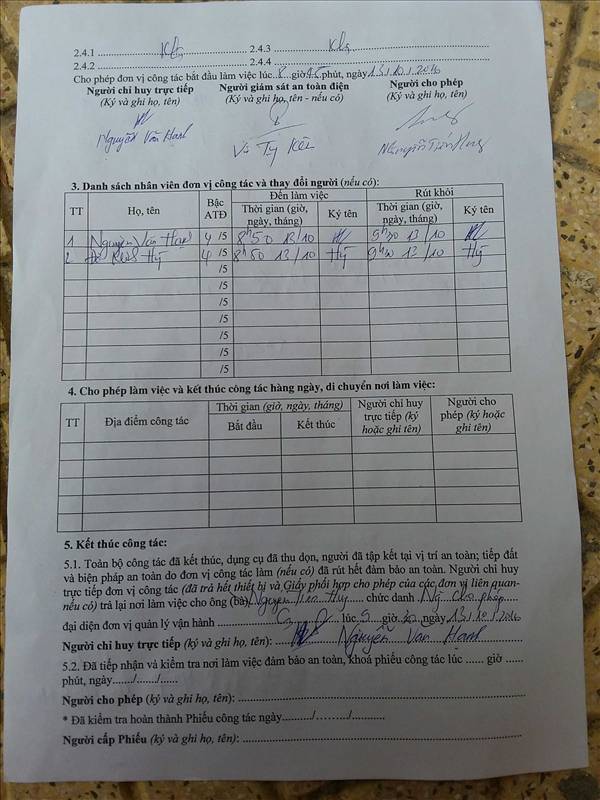 2.4.1 Khg 2.4.3 Khg
2.4.2 2.4.4
Cho phép đơn vị công tác bắt đầu làm việc lúc 8 giờ 45 phút, ngày 13/10/2016
Người chỉ huy trực tiếp Người giám sát an toàn điện Người cho phép
(Ký và ghi họ, tên) (Ký và ghi họ, tên - nếu có) (Ký và ghi họ, tên)
Nguyễn Văn Hạnh
3. Danh sách nhân viên đơn vị công tác và thay đổi người (nếu có):
TT Họ, tên Bậc ATĐ Đến làm việc Rút khỏi
Thời gian (giờ, ngày, tháng) Ký tên Thời gian (giờ, ngày, tháng) Ký tên
1 Nguyễn Văn Hạnh 4 /5 8h50 13/10 9h30 13/10
2 4 /5 8h50 13/10 Hỷ 9h30 13/10 Hỷ
/5
/5
/5
/5
/5
/5
/5
4. Cho phép làm việc và kết thúc công tác hàng ngày, di chuyển nơi làm việc:
TT Địa điểm công tác Thời gian (giờ, ngày, tháng) Người chỉ huy trực tiếp (ký hoặc ghi tên) Người cho phép (ký hoặc ghi tên)
Bắt đầu Kết thúc
5. Kết thúc công tác:
5.1. Toàn bộ công tác đã kết thúc, dụng cụ đã thu dọn, người đã tập kết tại vị trí an toàn; tiếp đất
và biện pháp an toàn do đơn vị công tác làm (nếu có) đã rút hết đảm bảo an toàn. Người chỉ huy
trực tiếp đơn vị công tác (đã trả hết thiết bị và Giấy phối hợp cho phép của các đơn vị liên quan-
nếu có) trả lại nơi làm việc cho ông (bà) chức danh Ng cho phép
đại diện đơn vị quản lý vận hành lúc 9 giờ 30 ngày 13/10/2016
Người chỉ huy trực tiếp (ký và ghi họ, tên): Nguyễn Văn Hạnh
5.2. Đã tiếp nhận và kiểm tra nơi làm việc đảm bảo an toàn, khoá phiếu công tác lúc ...... giờ ......
phút, ngày......./......./......
Người cho phép (ký và ghi họ, tên):
* Đã kiểm tra hoàn thành Phiếu công tác ngày........../........./...........
Người cấp Phiếu (ký và ghi họ, tên):